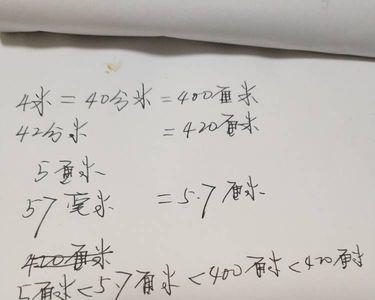 4米 = 40分米 = 400厘米
42分米 = 420厘米
5厘米
57毫米 = 5.7厘米
420厘米
5厘米<5.7厘米<400厘米<420厘米